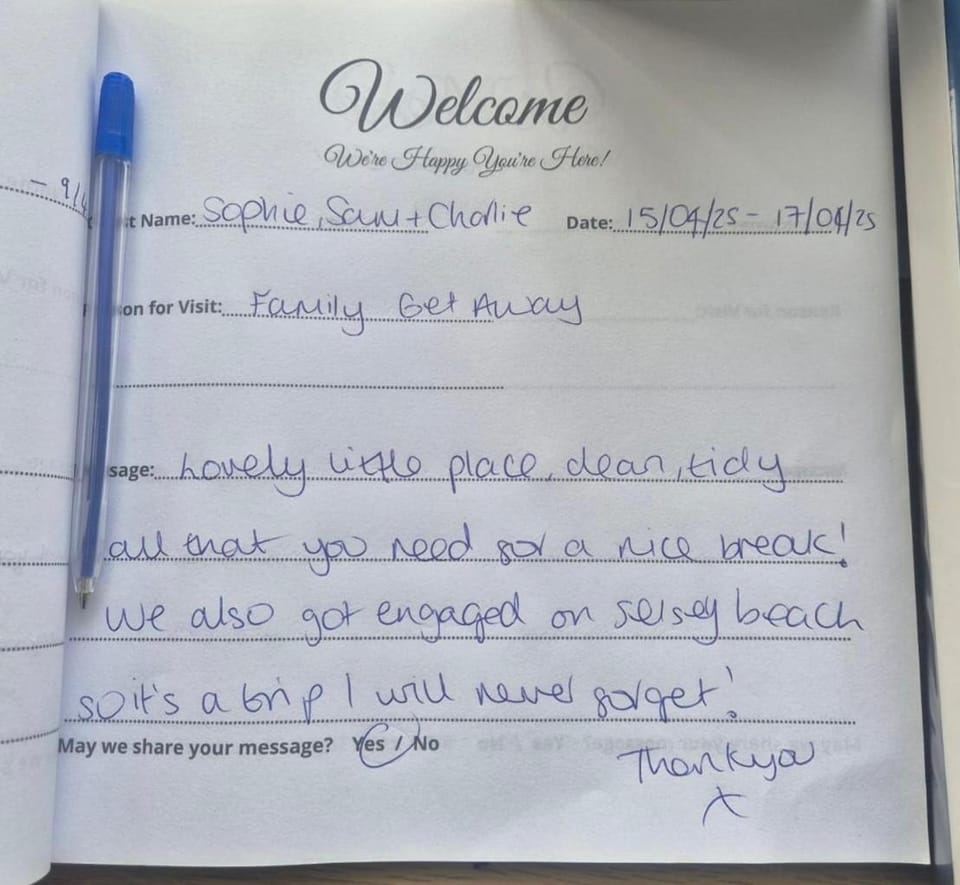 Welcome
We're Happy You're Here!
- 9/4
t Name: Sophie, Sam + Charlie Date: 15/04/25 - 17/04/25
on for Visit: Family Get Away
sage: Lovely little place, clean, tidy
all that you need for a nice break!
We also got engaged on Selsey beach
so it's a trip I will never forget!
May we share your message? Yes / No
Thankyou
x